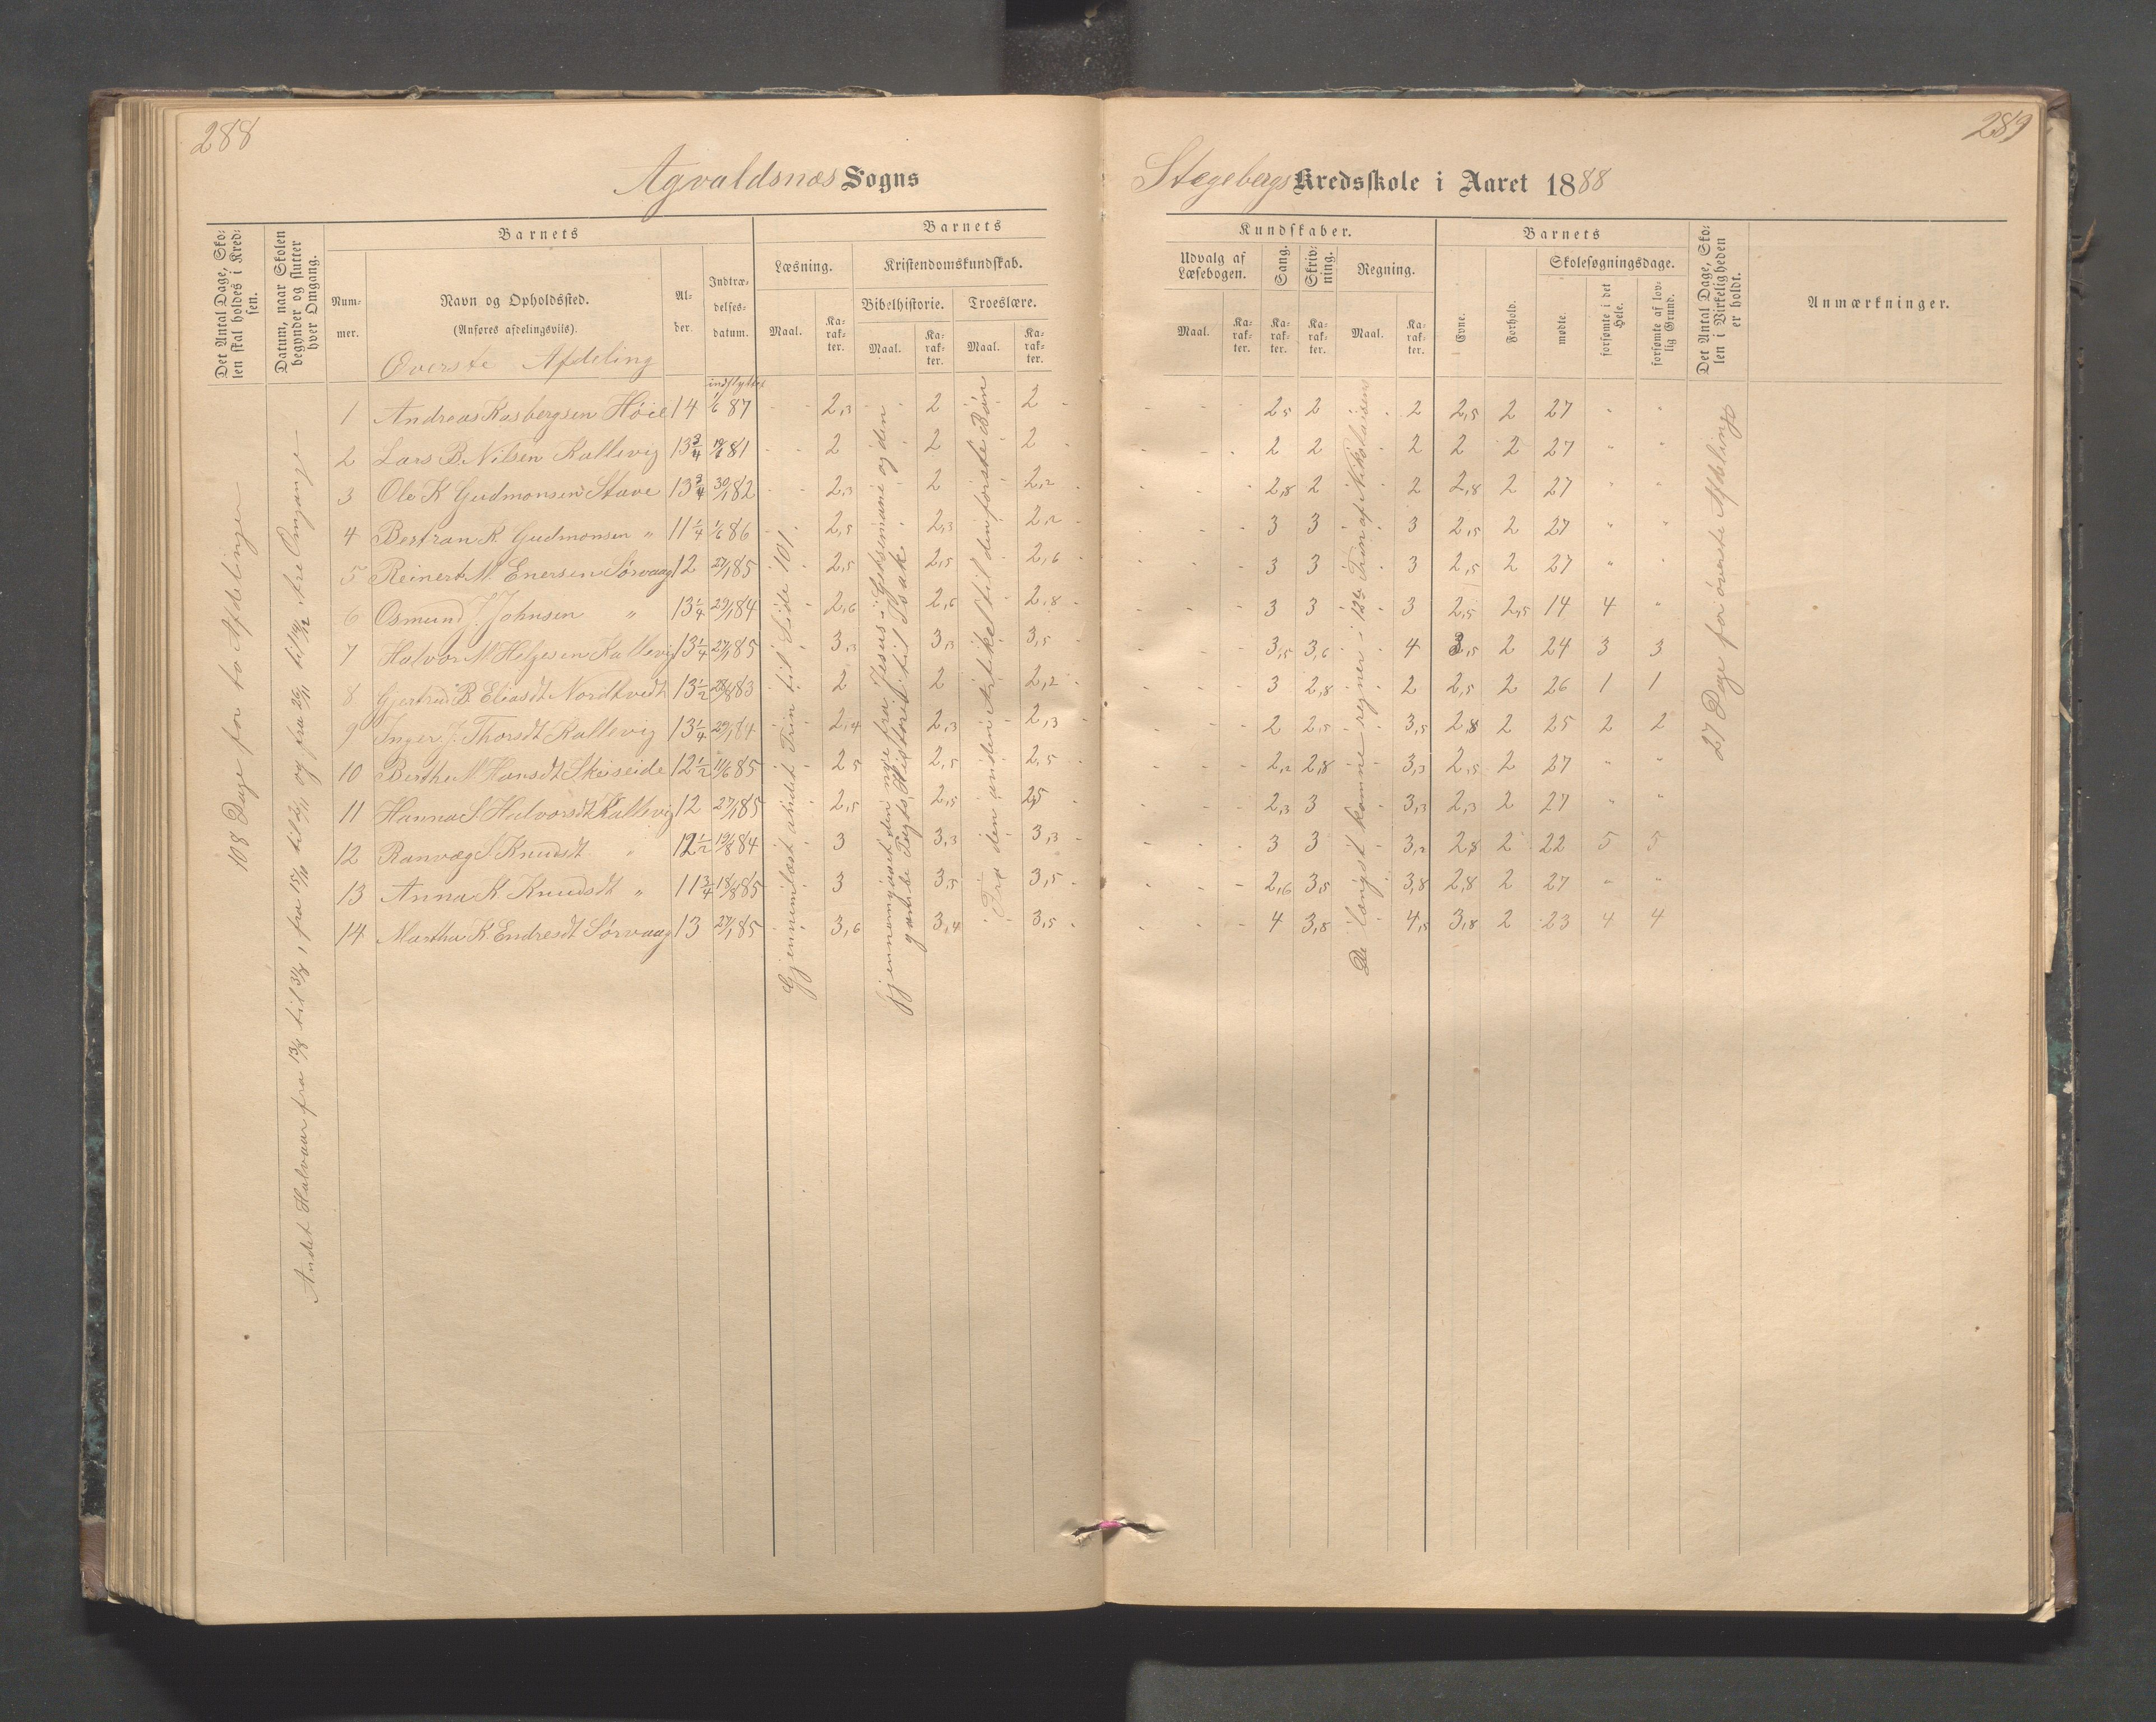 288
289
Agvaldsnæs Sogns
Stegebergs Kredsskole i Aaret 1888
Det Antal Dage, Sko-
len skal holdes i Kred-
sen.
Datum, naar Skolen
begynder og slutter
hver Omgang.
Barnets
Num-
mer.
Navn og Opholdssted.
(Anføres afdelingsvils).
Al-
der
Indtræ-
delses-
datum.
Barnets
Læsning.
Maal.
Ka-
rak-
ter.
Kristendomskundskab.
Bibelhistorie.
Maal.
Ka-
rak-
ter.
Troeslære.
Maal.
Ka-
rak-
ter.
Kundskaber.
Udvalg af
Læsebogen.
Maal.
Ka-
rak-
ter.
Sang.
Ka-
rak-
ter.
Skriv-
ning.
Ka-
rak-
ter.
Regning.
Maal.
Ka-
rak-
ter.
Barnets
Evne.
Forhold.
Skolesøgningsdage.
mødte.
forsømte i det
Hele.
forsømte af lov-
lig Grund.
Det Antal Dage, Sko-
len i Virkeligheden
er holdt.
Anmærkninger.
Øverste Afdeling
indflyttet
1 Andreas Rasbergsen Høie 14 1/6 87 2,3 2 2 2,5 2 2 2,5 2 27 " "
2 Lars B. Nilsen Kallevig 13 3/4 81 2 2 2 2 2 2 2 2 27 " "
3 Ole K Gudmonsen Stave 13 3/4 30/1 82 2,3 2 2,2 2,8 2 2 2,8 2 27 " "
4 Bertran K. Gudmonsen " 11 1/4 1/6 86 2,5 2,3 2,2 3 3 3 2,5 2 27 " "
5 Reinert M. Enersen Sørvaag 12 27/1 85 2,5 2,5 2,6 3 3 3 2,5 2 27 " "
6 Osmund J. Johnsen " 13 1/4 29/1 84 2,6 2,6 2,8 3 3 3 2,5 2,5 14 4 "
7 Halvor M Helgesen Kallevig 13 1/4 27/1 85 3,3 3,3 3,5 3,5 3,6 4 3,5 2 24 3 3
8 Gjertrud B. Eliasdt Nordtvedt 13 1/2 83 2 2 2,2 3 2,8 2 2,5 2 26 1 1
9 Inger J. Thorsdt Kallevig 13 1/4 29/1 84 2,4 2,3 2,3 2 2,5 3,5 2,8 2 25 2 2
10 Berthe M Hansdt Skeiseide 12 1/2 11/6 85 2,5 2,5 2,5 2,2 2,8 3,3 2,5 2 27 " "
11 Hanna S. Halvorsdt Kallevig 12 27/1 85 2,5 2,5 2,5 2,3 3 3,3 2,3 2 27 " "
12 Ranvæg S. Knudsdt " 12 1/2 19/8 84 3 3,3 3,3 3 3 3,2 2,8 2 22 5 5
13 Anna K. Knudsdt " 11 3/4 18/8 85 3 3,3 3,5 2,6 3,5 3,8 2,8 2 27 " "
14 Martha K. Endresdt Sørvaag 13 27/1 85 3,6 3,4 3,5 4 3,8 4,5 3,8 2 23 4 4
108 Dage for to Afdelinger
Andet Halvaar fra 13/8 til 31/8, fra 15/10 til 2/11 og fra 26/11 til 14/12 tre Omgange
Gjennemlæst andet Trin til Side 101.
Gjennemgaaet den nye fra Jesus i Getsemane og den
gamle Pagts Historie til Isak.
Fra den anden Artikel til den første Bøn
De længst komne regner i 12te Trin af Nikolaisens
27 Dage for øverste Afdeling